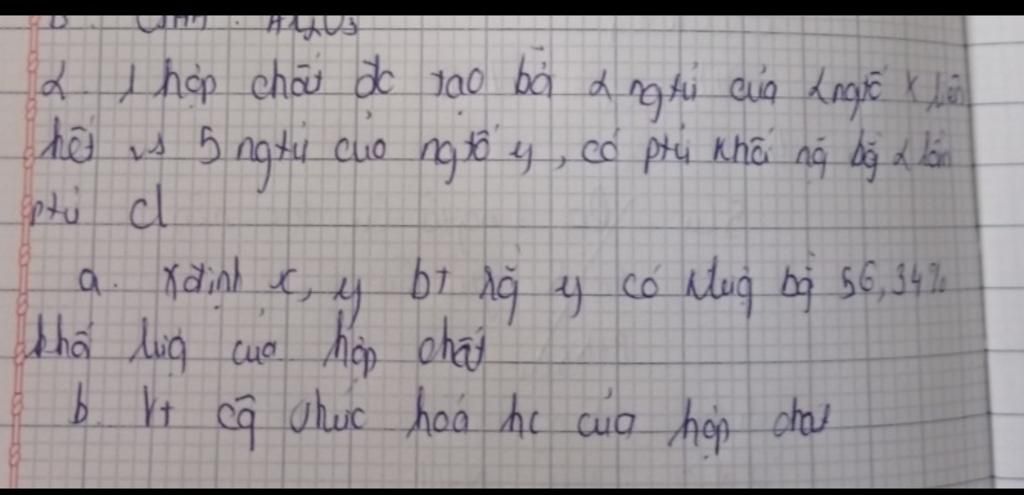 2. 1 hợp chất đc tạo bởi 2 ngtử của 2 ngtố x liên
kết vs 5 ngtử của ngtố y, có ptử khối nặ bg 2 lần
ptử cl
a. xđịnh x, y bt rằg y có klug bg 56,34%
khối lưg của hợp chất
b. Vt cg thức hoá hc của hợp chất